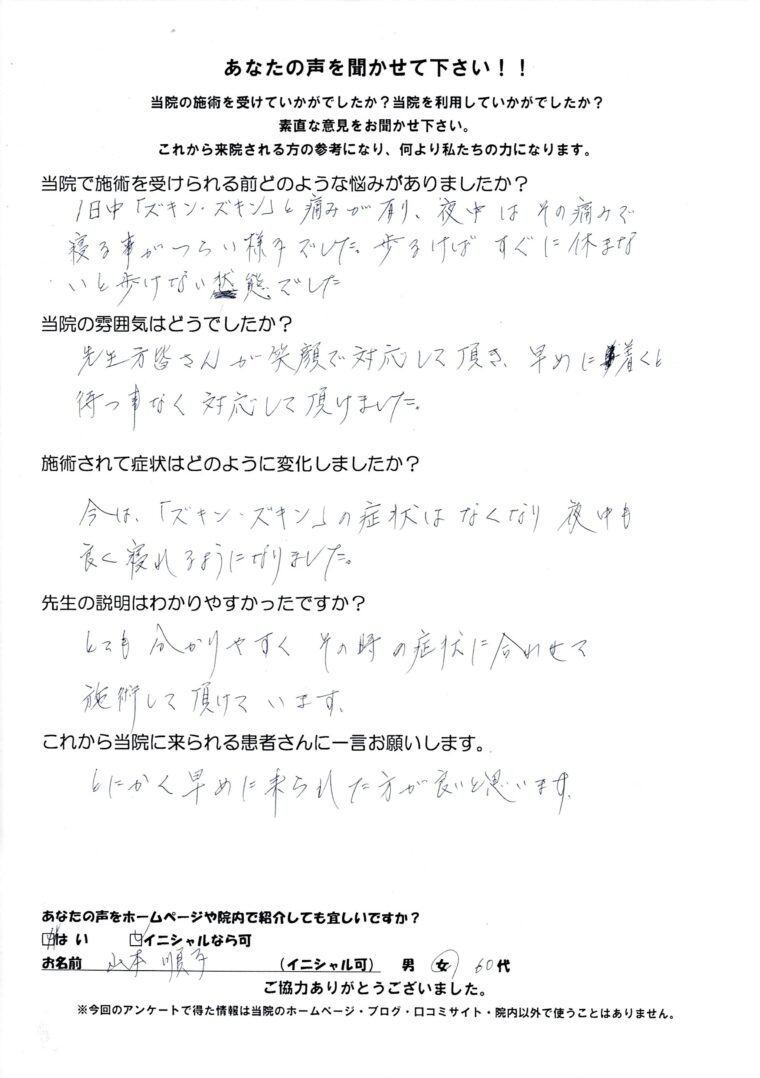 あなたの声を聞かせて下さい！！
当院の施術を受けていかがでしたか？当院を利用していかがでしたか？
素直な意見をお聞かせ下さい。
これから来院される方の参考になり、何より私たちの力になります。
当院で施術を受けられる前どのような悩みがありましたか？
1日中「ズキン・ズキン」と痛みが有り、夜中はその痛みで
寝る事がつらい様子でした。歩るけばすぐに休まな
いと歩けない状態でした
当院の雰囲気はどうでしたか？
先生方皆さんが笑顔で対応して頂き、早めに着くと
待つ事なく対応して頂けました。
施術されて症状はどのように変化しましたか？
今は、「ズキン・ズキン」の症状はなくなり夜中も
良く寝れるようになりました。
先生の説明はわかりやすかったですか？
とても分かりやすくその時の症状に合わせて
施術して頂けています。
これから当院に来られる患者さんに一言お願いします。
とにかく早めに来られた方が良いと思います。
あなたの声をホームページや院内で紹介しても宜しいですか？
はい　イニシャルなら可
お名前　山本　順子　（イニシャル可）　男　女　60代
ご協力ありがとうございました。
※今回のアンケートで得た情報は当院のホームページ・ブログ・口コミサイト・院内以外で使うことはありません。